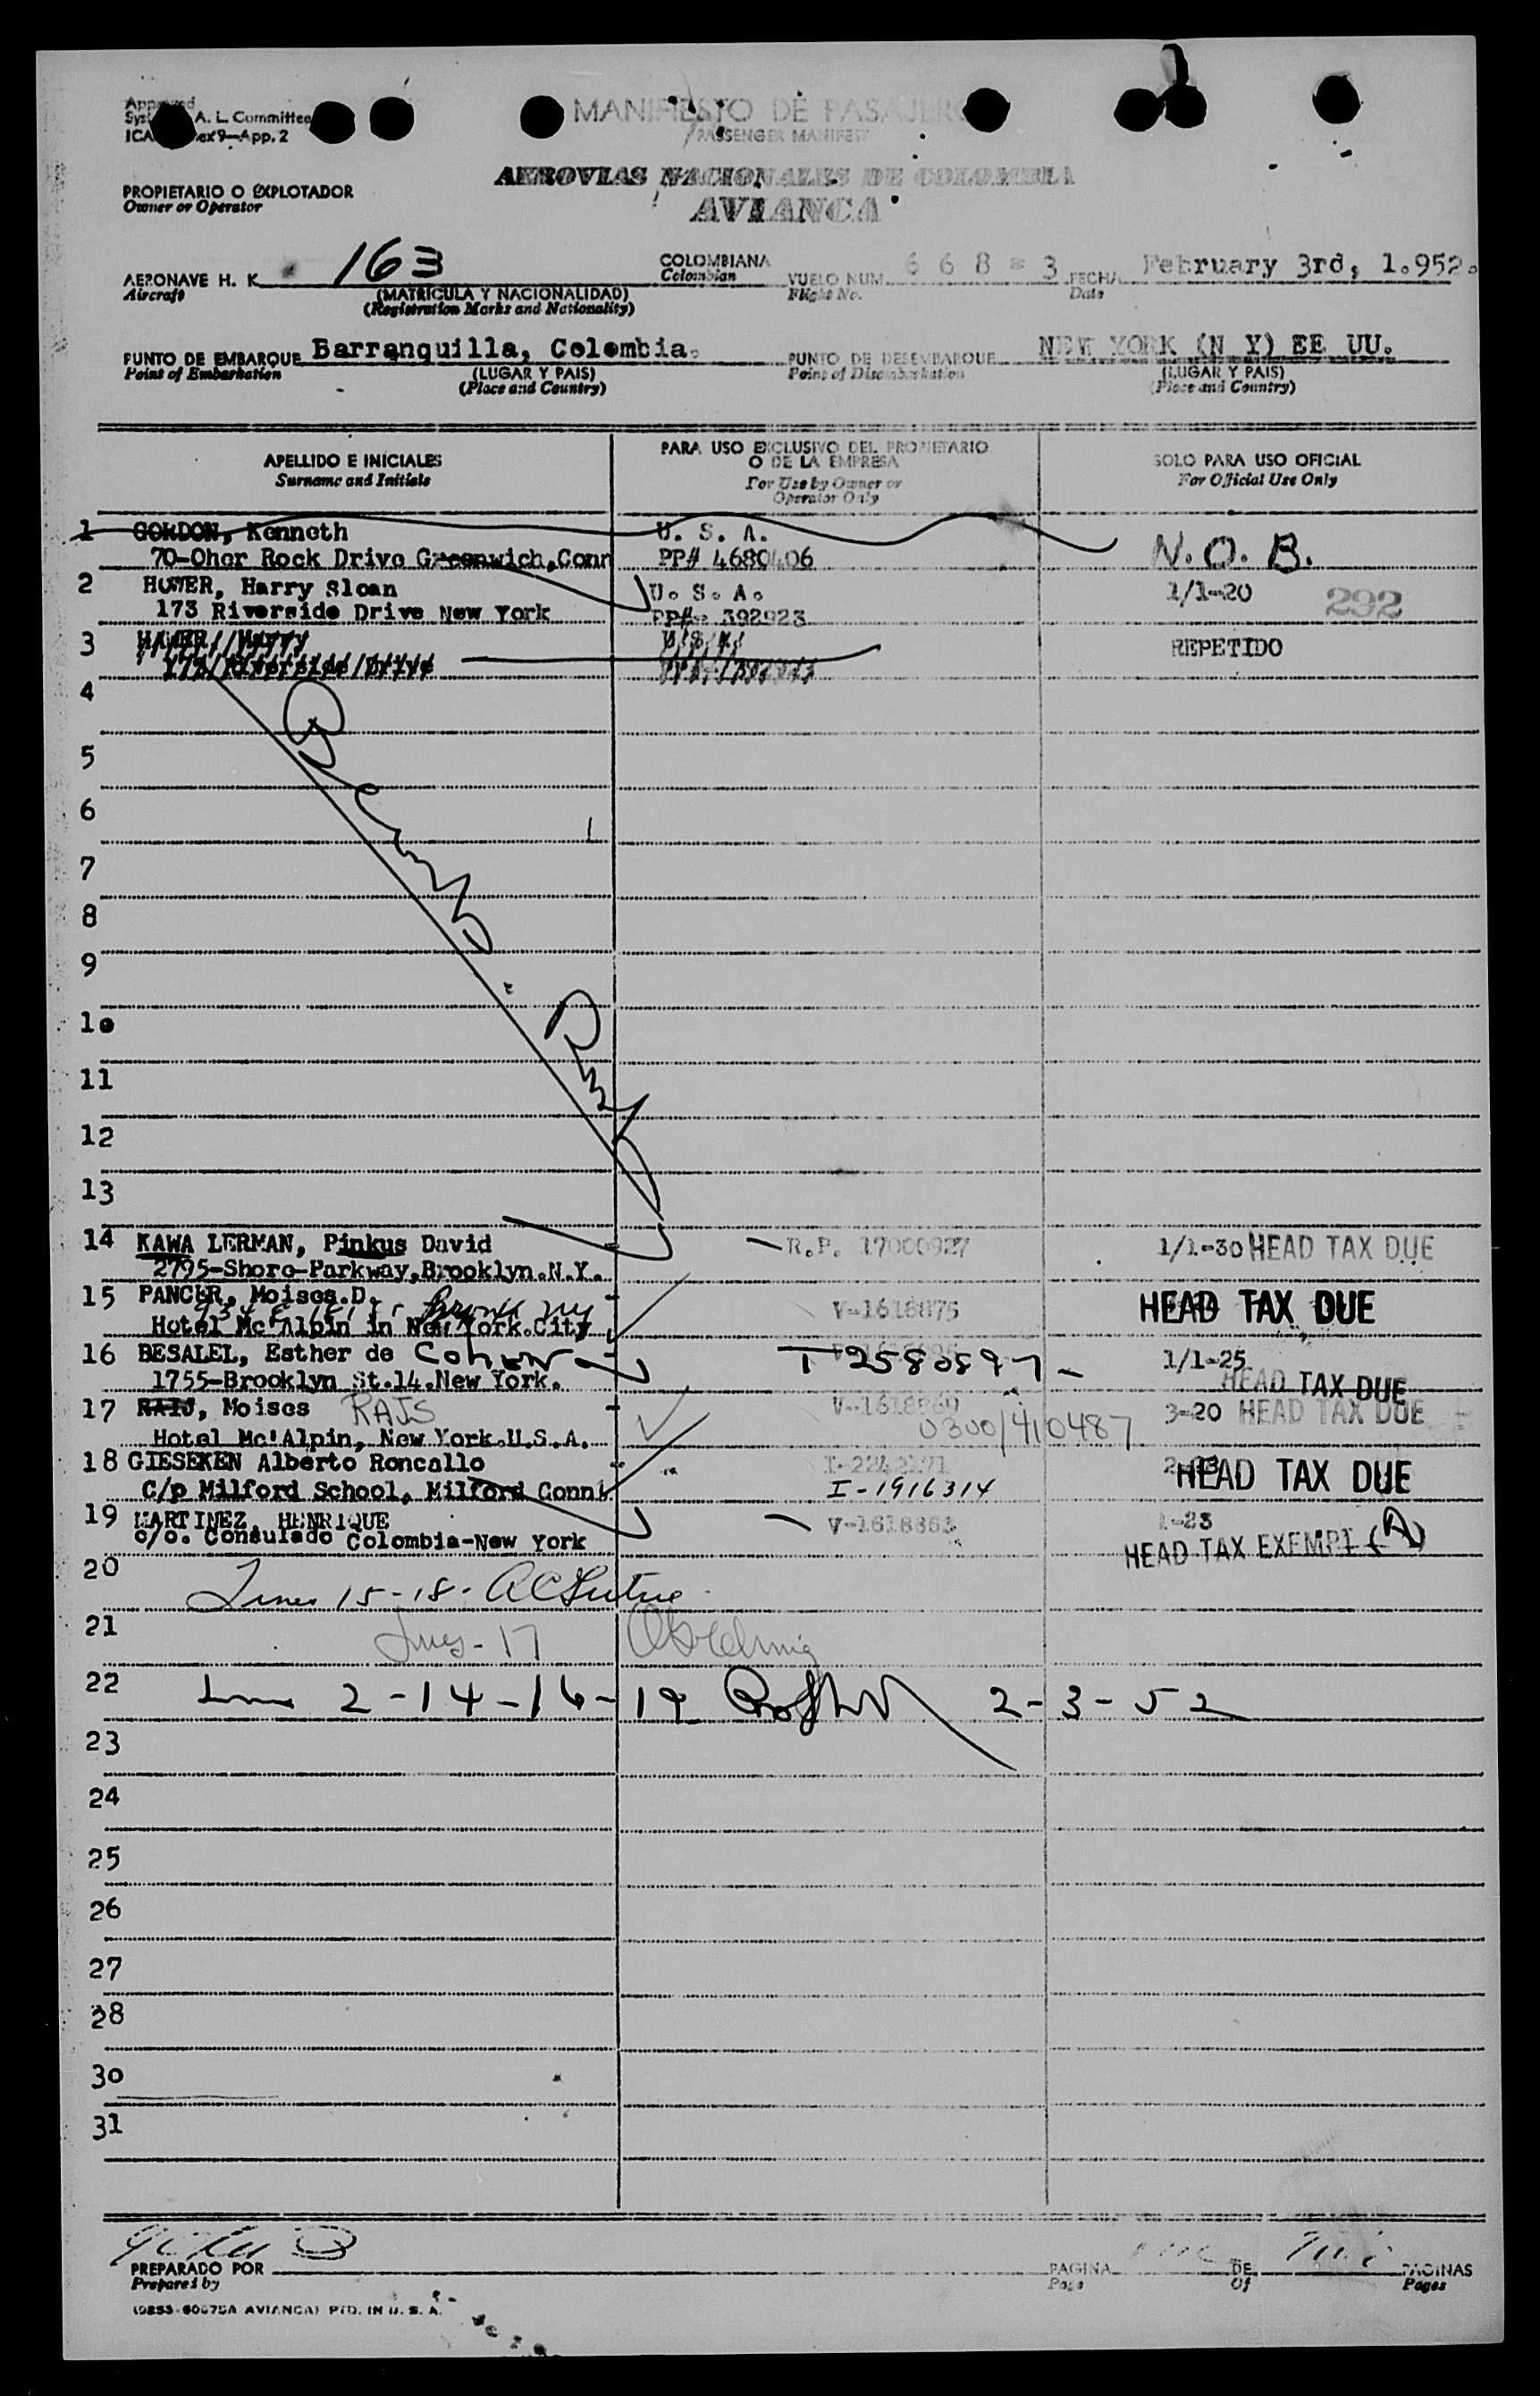 A. L. Committee
ex 9—App. 2
MANIFIESTO DE PASAJERO
PASSENGER MANIFEST
AEROVIAS NACIONALES DE COLOMBIA
AVIANCA
PROPIETARIO O EXPLOTADOR
Owner or Operator
AERONAVE H. K 163 COLOMBIANA VUELO NUM. 668-3 FECHA February 3rd, 1.952.
Aircraft (MATRICULA Y NACIONALIDAD) Colombian Flight No. Date
(Registration Marks and Nationality)
PUNTO DE EMBARQUE Barranquilla, Colombia. PUNTO DE DESEMBARQUE NEW YORK (N Y) EE UU.
Point of Embarkation (LUGAR Y PAIS) Point of Disembarkation (LUGAR Y PAIS)
(Place and Country) (Place and Country)
APELLIDO E INICIALES PARA USO EXCLUSIVO DEL PROPIETARIO O DE LA EMPRESA SOLO PARA USO OFICIAL
Surname and Initials For Use by Owner or Operator Only For Official Use Only
1 GORDON, Kenneth U. S. A. N.O.B.
70-Oher Rock Drive Greenwich,Conn PP# 4680406
2 Harry Sloan U. S. A. 1/1-20 292
173 Riverside Drive New York PP#- 392923
3 REPETIDO
173/Riverside/Drive
4
5
6
7
8
9
10
11
12
13
14 KAWA LERMAN, Pinkus David R.P. 17000927 1/1-30 HEAD TAX DUE
2795-Shore-Parkway,Brooklyn.N.Y.
15 PANCER, Moises.D. V-1618875 HEAD TAX DUE
Hotel Mc'Alpin in New York.City
16 BESALEL, Esther de Cohen T 2580897 - 1/1-25
1755-Brooklyn St.14.New York. HEAD TAX DUE
17 Moises RAJS V-1618869 3-20 HEAD TAX DUE
Hotel Mc'Alpin, New York.U.S.A. 0300/410487
18 GIESEKEN Alberto Roncallo HEAD TAX DUE
C/p Milford School, Milford Connt I-1916314
19 MARTINEZ, HENRIQUE V-1618863 1-23
c/o. Consulado Colombia-New York HEAD TAX EXEMPT (A)
20
Lines 15-18-
21
Lines - 17
22 Lines 2-14-16-19 2-3-52
23
24
25
26
27
28
30
31
PREPARADO POR PAGINA DE PAGINAS
Prepared by Page Of Pages
AVIANCA) PTD. IN U. S. A.